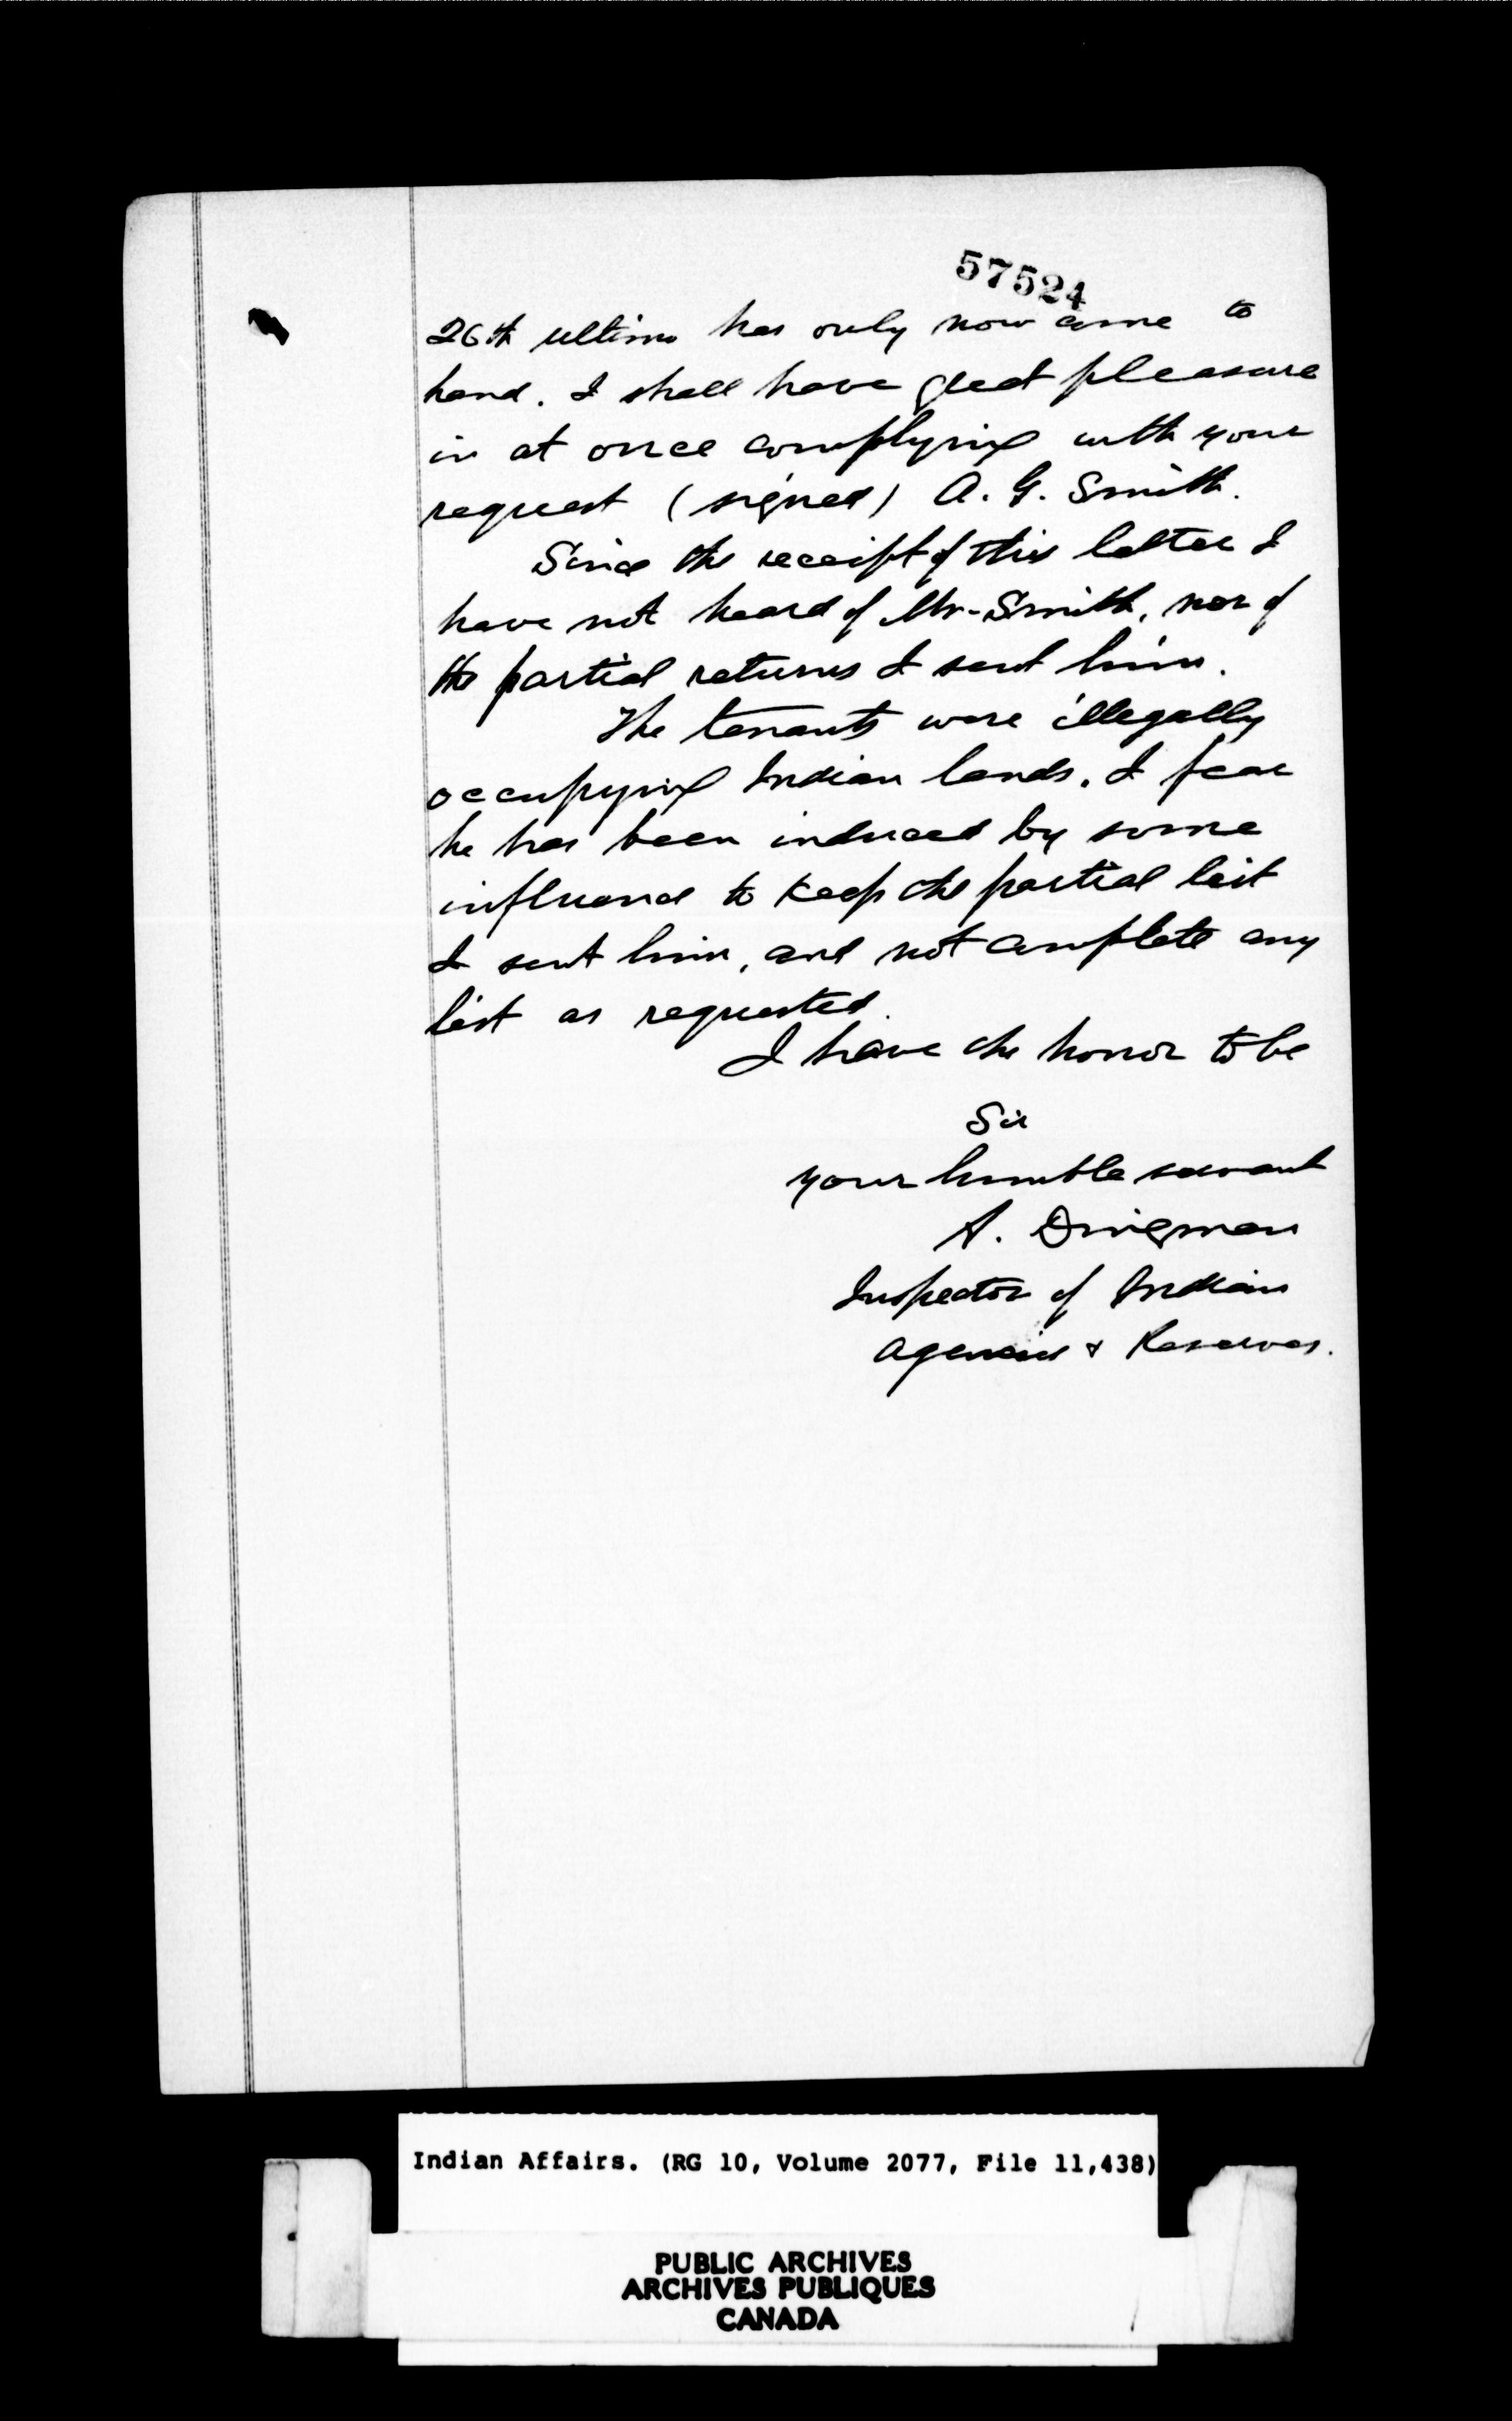 57524
26th ultimo has only now come to
hand. I shall have great pleasure
in at once complying with your
request (signed) A. G. Smith.
Since the receipt of this letter I
have not heard of Mr. Smith, nor of
the partial returns I sent him.
The tenants were illegally
occupying Indian lands. I fear
he has been induced by some
influence to keep the partial list
I sent him, and not complete any
list as requested.
I have the honor to be
Sir
your humble servant
A. Dingman
Inspector of Indian
Agencies & Reserves.
Indian Affairs. (RG 10, Volume 2077, File 11,438)
PUBLIC ARCHIVES
ARCHIVES PUBLIQUES
CANADA